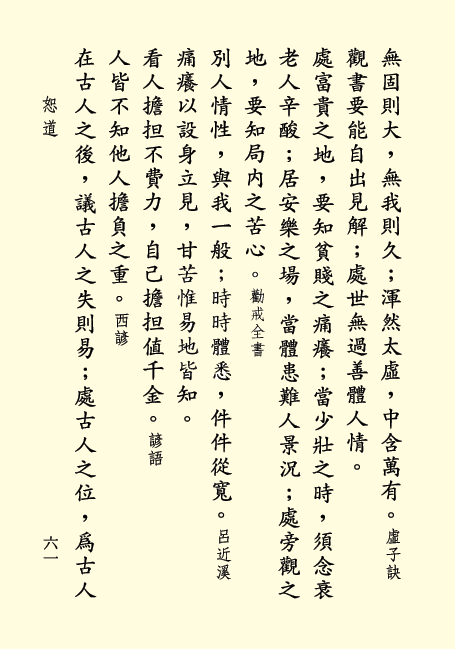 無固則大，無我則久；渾然太虛，中含萬有。盧子訣
觀書要能自出見解；處世無過善體人情。
處富貴之地，要知貧賤之痛癢；當少壯之時，須念衰
老人辛酸；居安樂之場，當體患難人景況；處旁觀之
地，要知局內之苦心。勸戒全書
別人情性，與我一般；時時體悉，件件從寬。呂近溪
痛癢以設身立見，甘苦惟易地皆知。
看人擔担不費力，自己擔担值千金。諺語
人皆不知他人擔負之重。西諺
在古人之後，議古人之失則易；處古人之位，為古人
恕道
六一